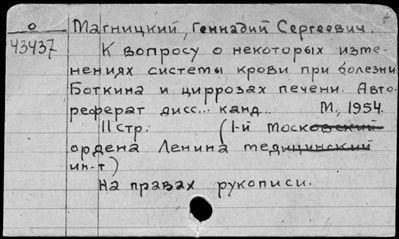 о Магницкий, Геннадий Сергеевич.
43437 К вопросу о некоторых изме-
нениях системы крови при болезни
Боткина и циррозах печени. Авто-
реферат дисс... канд... М, 1954.
11 стр. (1-й московский
ордена Ленина медицинский
ин-т)
На правах рукописи.